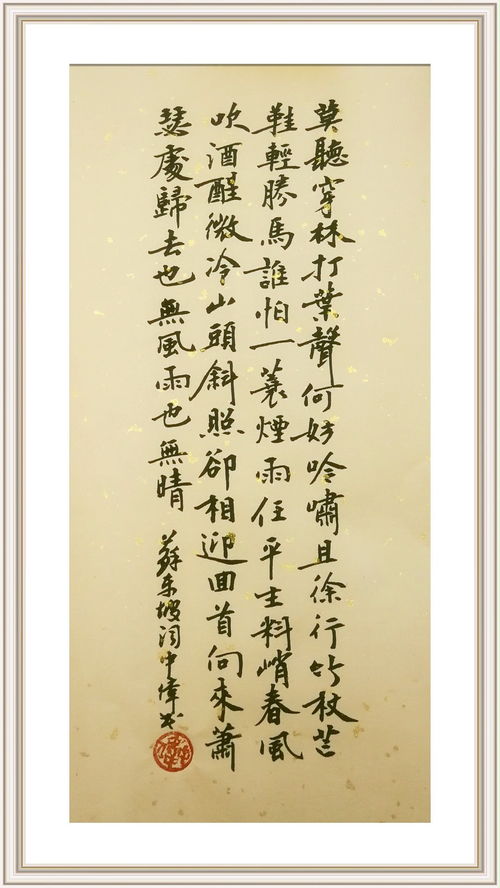 莫聽穿林打葉聲何妨吟嘯且徐行竹杖芒
鞋輕勝馬誰怕一蓑煙雨任平生料峭春風
吹酒醒微冷山頭斜照卻相迎回首向來蕭
瑟處歸去也無風雨也無晴 蘇东坡词中偉书